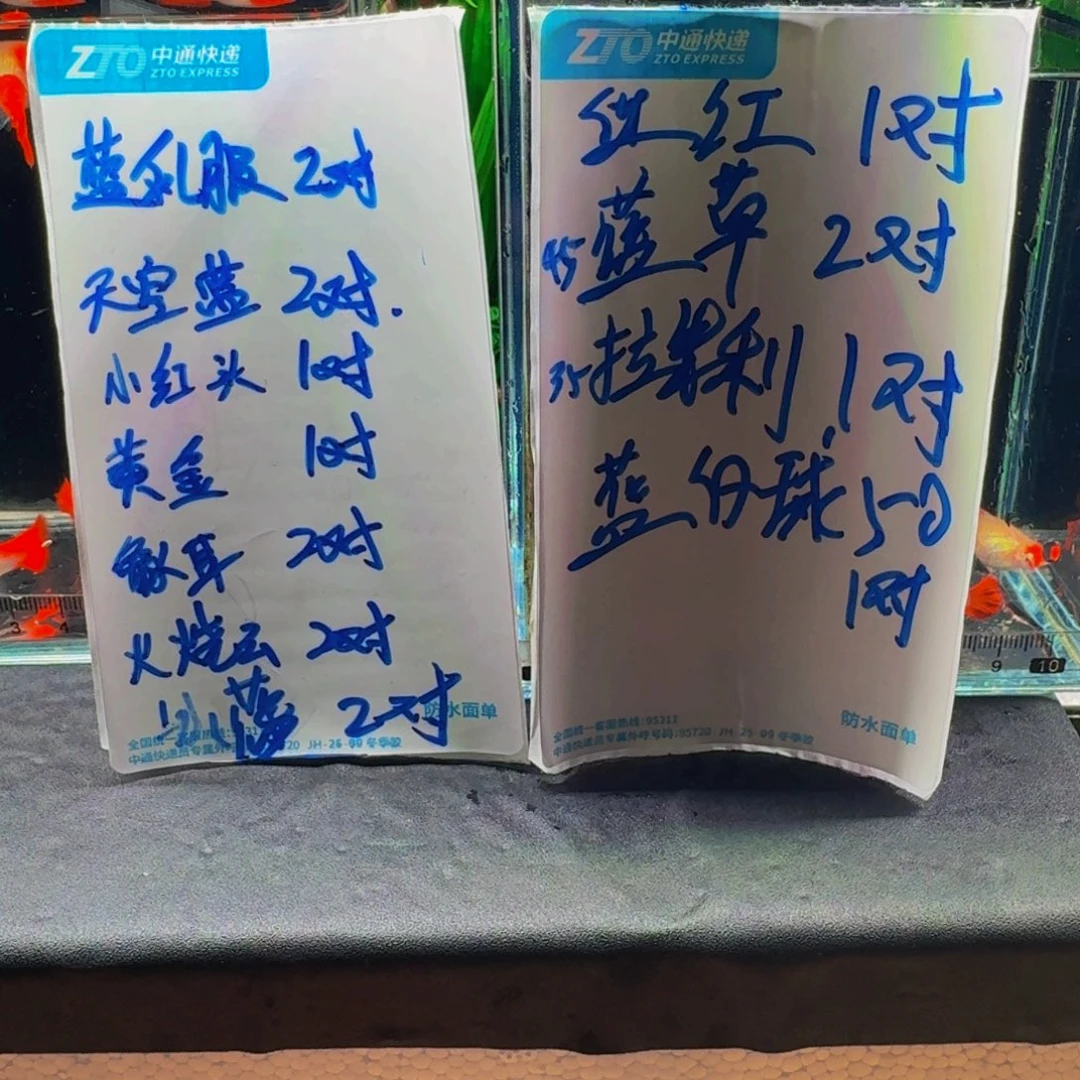 ZTO 中通快递
ZTO EXPRESS
蓝礼服 2对
天空蓝 2对.
小红头 1对
黄金 1对
象耳 2对
火烧云 2对
小蓝 2对
防水面单
全国统一客服热线:95311
中通快递员专属外呼号码:95720 JH-26-09冬季胶
ZTO 中通快递
ZTO EXPRESS
红 1对
45 蓝草 2对
35 拉朱利 1对
蓝分球 50
1对
防水面单
全国统一客服热线:95311
中通快递员专属外呼号码:95720 JH-26-09冬季胶